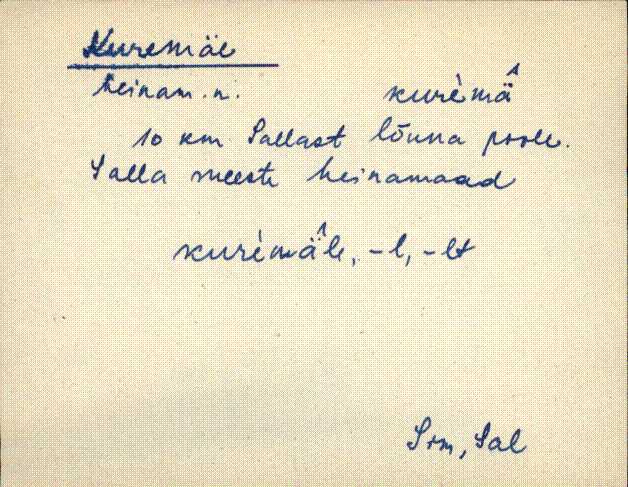 Kuremäe
heinam. n. kurèmä̂
10 km Sallast lõuna poole.
Salla meeste heinamaad
kurèmä̂le, -l, -lt
Srm, Sal